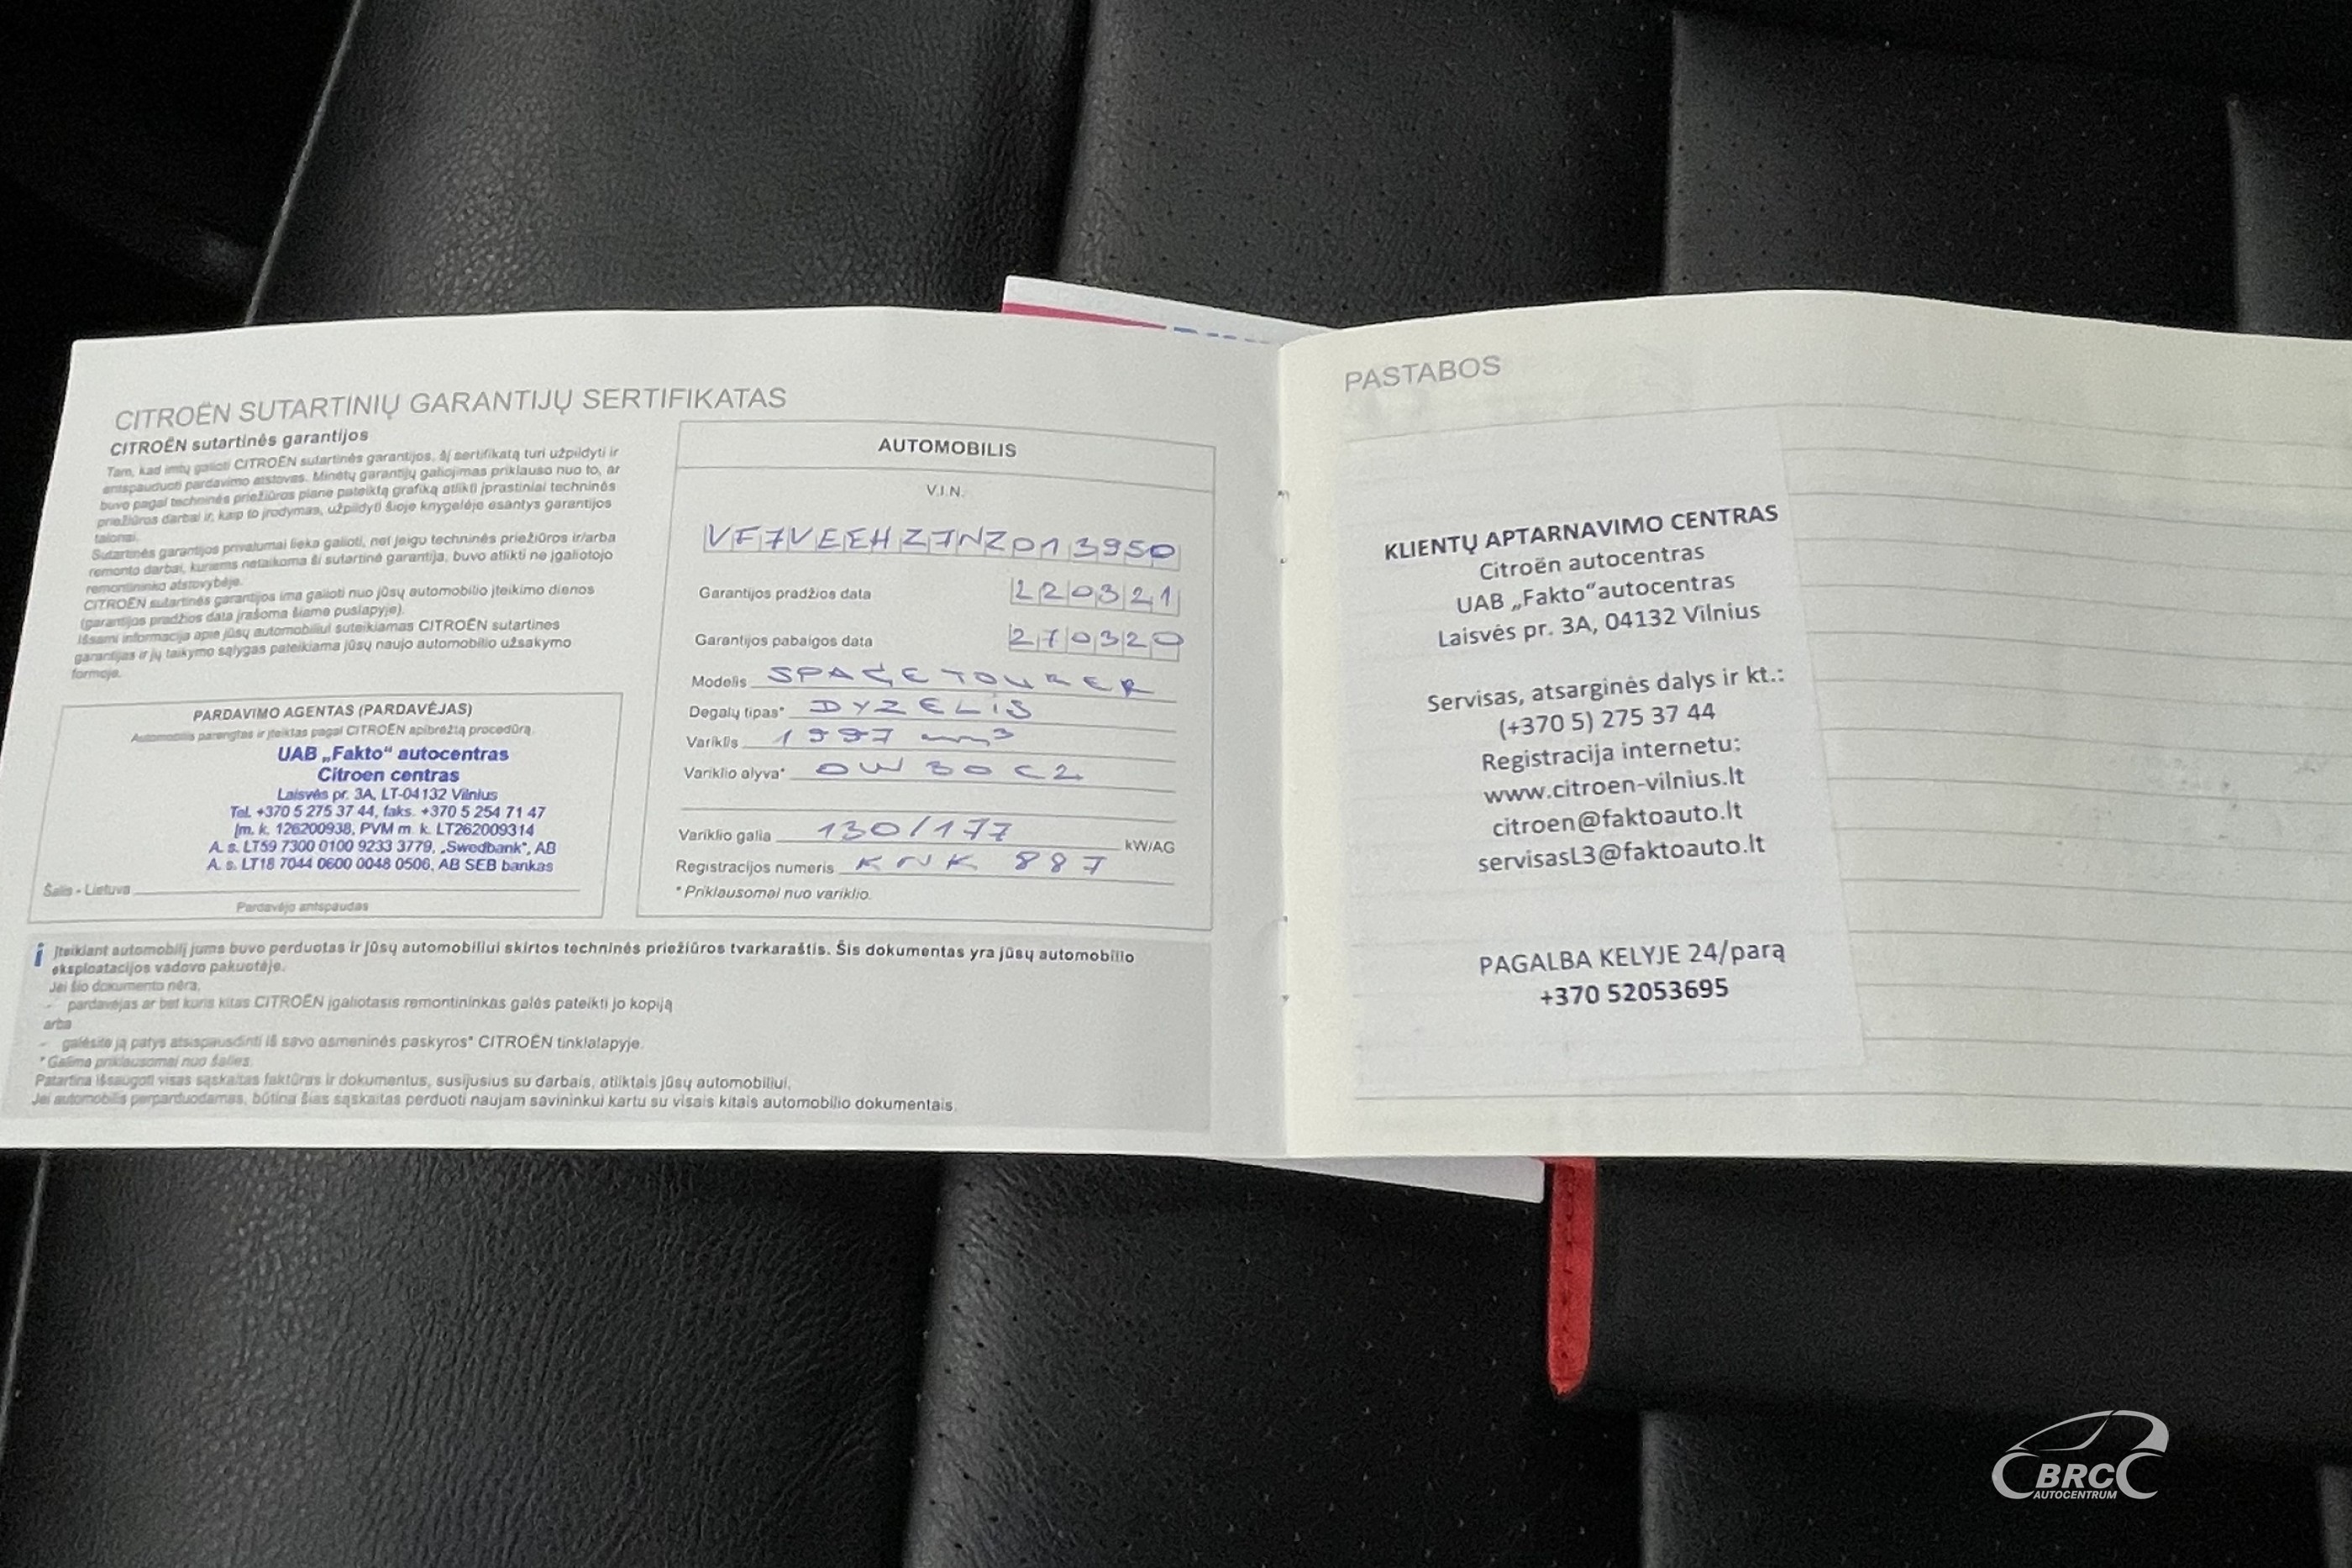 CITROËN SUTARTINIŲ GARANTIJŲ SERTIFIKATAS
CITROËN sutartinės garantijos
Tam, kad imtų galioti CITROËN sutartinės garantijos, šį sertifikatą turi užpildyti ir
antspauduoti pardavimo atstovas. Minėtų garantijų galiojimas priklauso nuo to, ar
buvo pagal techninės priežiūros plane pateiktą grafiką atlikti įprastiniai techninės
priežiūros darbai ir, kaip to įrodymas, užpildyti šioje knygelėje esantys garantijos
talonai.
Sutartinės garantijos privalumai lieka galioti, net jeigu techninės priežiūros ir/arba
remonto darbai, kuriems netaikoma ši sutartinė garantija, buvo atlikti ne įgaliotojo
remontininko atstovybėje.
CITROËN sutartinės garantijos ima galioti nuo jūsų automobilio įteikimo dienos
(garantijos pradžios data įrašoma šiame puslapyje).
Išsami informacija apie jūsų automobiliui suteikiamas CITROËN sutartines
garantijas ir jų taikymo sąlygas pateikiama jūsų naujo automobilio užsakymo
formoje.
PARDAVIMO AGENTAS (PARDAVĖJAS)
Automobilis parengtas ir įteiktas pagal CITROËN apibrėžtą procedūrą.
UAB „Fakto“ autocentras
Citroen centras
Laisvės pr. 3A, LT-04132 Vilnius
Tel. +370 5 275 37 44, faks. +370 5 254 71 47
Įm. k. 126200938, PVM m. k. LT262009314
A. s. LT59 7300 0100 9233 3779, „Swedbank“, AB
A. s. LT18 7044 0600 0048 0506, AB SEB bankas
Šalis - Lietuva
Pardavėjo antspaudas
AUTOMOBILIS
V.I.N.
VF7VEEHZ7NZ013950
Garantijos pradžios data 220321
Garantijos pabaigos data 270320
Modelis SPACETOURER
Degalų tipas* DYZELIS
Variklis 1997 cm3
Variklio alyva* 0W30C2
Variklio galia 130/177 kW/AG
Registracijos numeris KNK 887
* Priklausomai nuo variklio.
i Įteikiant automobilį jums buvo perduotas ir jūsų automobiliui skirtos techninės priežiūros tvarkaraštis. Šis dokumentas yra jūsų automobilio
eksploatacijos vadovo pakuotėje.
Jei šio dokumento nėra,
- pardavėjas ar bet kuris kitas CITROËN įgaliotasis remontininkas galės pateikti jo kopiją
arba
- galėsite ją patys atsispausdinti iš savo asmeninės paskyros* CITROËN tinklalapyje.
* Galima priklausomai nuo šalies.
Patartina išsaugoti visas sąskaitas faktūras ir dokumentus, susijusius su darbais, atliktais jūsų automobiliui.
Jei automobilis perparduodamas, būtina šias sąskaitas perduoti naujam savininkui kartu su visais kitais automobilio dokumentais.
PASTABOS
KLIENTŲ APTARNAVIMO CENTRAS
Citroën autocentras
UAB „Fakto“autocentras
Laisvės pr. 3A, 04132 Vilnius
Servisas, atsarginės dalys ir kt.:
(+370 5) 275 37 44
Registracija internetu:
www.citroen-vilnius.lt
citroen@faktoauto.lt
servisasL3@faktoauto.lt
PAGALBA KELYJE 24/parą
+370 52053695
BRC
AUTOCENTRUM